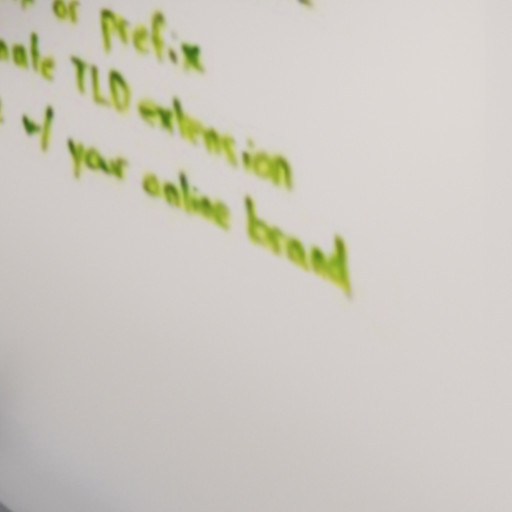 or prefix
TLD extension
w/ your online brand